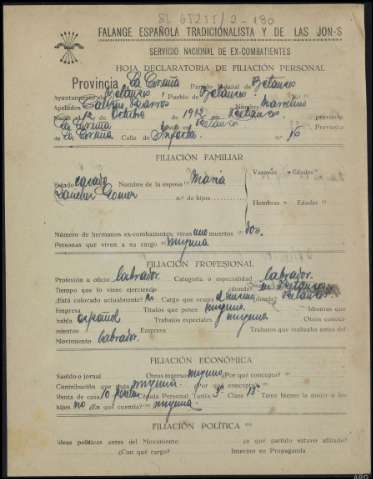 FALANGE ESPAÑOLA TRADICIONALISTA Y DE LAS JON-S
SERVICIO NACIONAL DE EX-COMBATIENTES
HOJA DECLARATORIA DE FILIACIÓN PERSONAL
Provincia La Coruña Partido Judicial de Betanzos
Ayuntamiento de Betanzos Pueblo de Betanzos
Apellidos Nombre Marcelino
el 12 de Octubre de 1912 en Betanzos Provincia
La Coruña
de La Coruña Calle de n.º 16
FILIACIÓN FAMILIAR
Estado casado Nombre de la esposa María Varones Edades
Sánchez Gómez n.º de hijos
Hembras Edades
Número de hermanos ex-combatientes, vivos uno muertos dos.
Personas que viven a su cargo ninguna
FILIACIÓN PROFESIONAL
Profesión u oficio labrador. Categoría o especialidad labrador.
Tiempo que lo viene ejerciendo (dónde) en Betanzos
¿Está colocado actualmente? Cargo que ocupa (dónde) Betanzos
Empresa Títulos que posee ninguno Idiomas que
habla español Trabajos especiales ninguno Otros conoci-
mientos Empresa Trabajos que realizaba antes del
Movimiento labrador.
FILIACIÓN ECONÓMICA
Sueldo o jornal Otros ingresos ninguno ¿Por qué concepto?
Contribución que paga ninguna. ¿Por qué conceptos?
Renta de casa 10 pesetas Cédula Personal Tarifa 3ª Clase 13ª Tiene bienes la mujer o los
hijos no ¿En qué cuantía? ninguna.
FILIACIÓN POLÍTICA
Ideas políticas antes del Movimiento ¿a qué partido estuvo afiliado?
¿Con qué cargo? Intervino en Propaganda